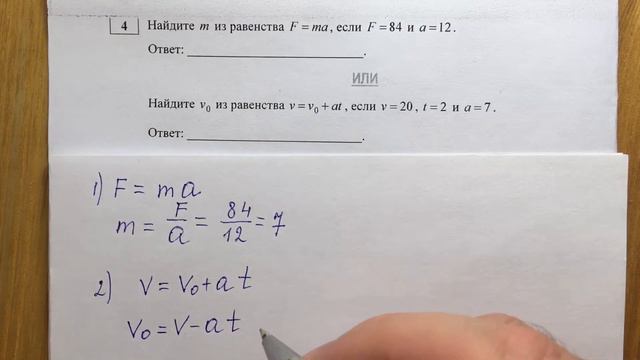 4 Найдите m из равенства F = ma, если F = 84 и a = 12.
Ответ: ______________________.
ИЛИ
Найдите v₀ из равенства v = v₀ + at, если v = 20, t = 2 и a = 7.
Ответ: ______________________.
1) F = ma
m = F/a = 84/12 = 7
2) v = v₀ + at
v₀ = v − at